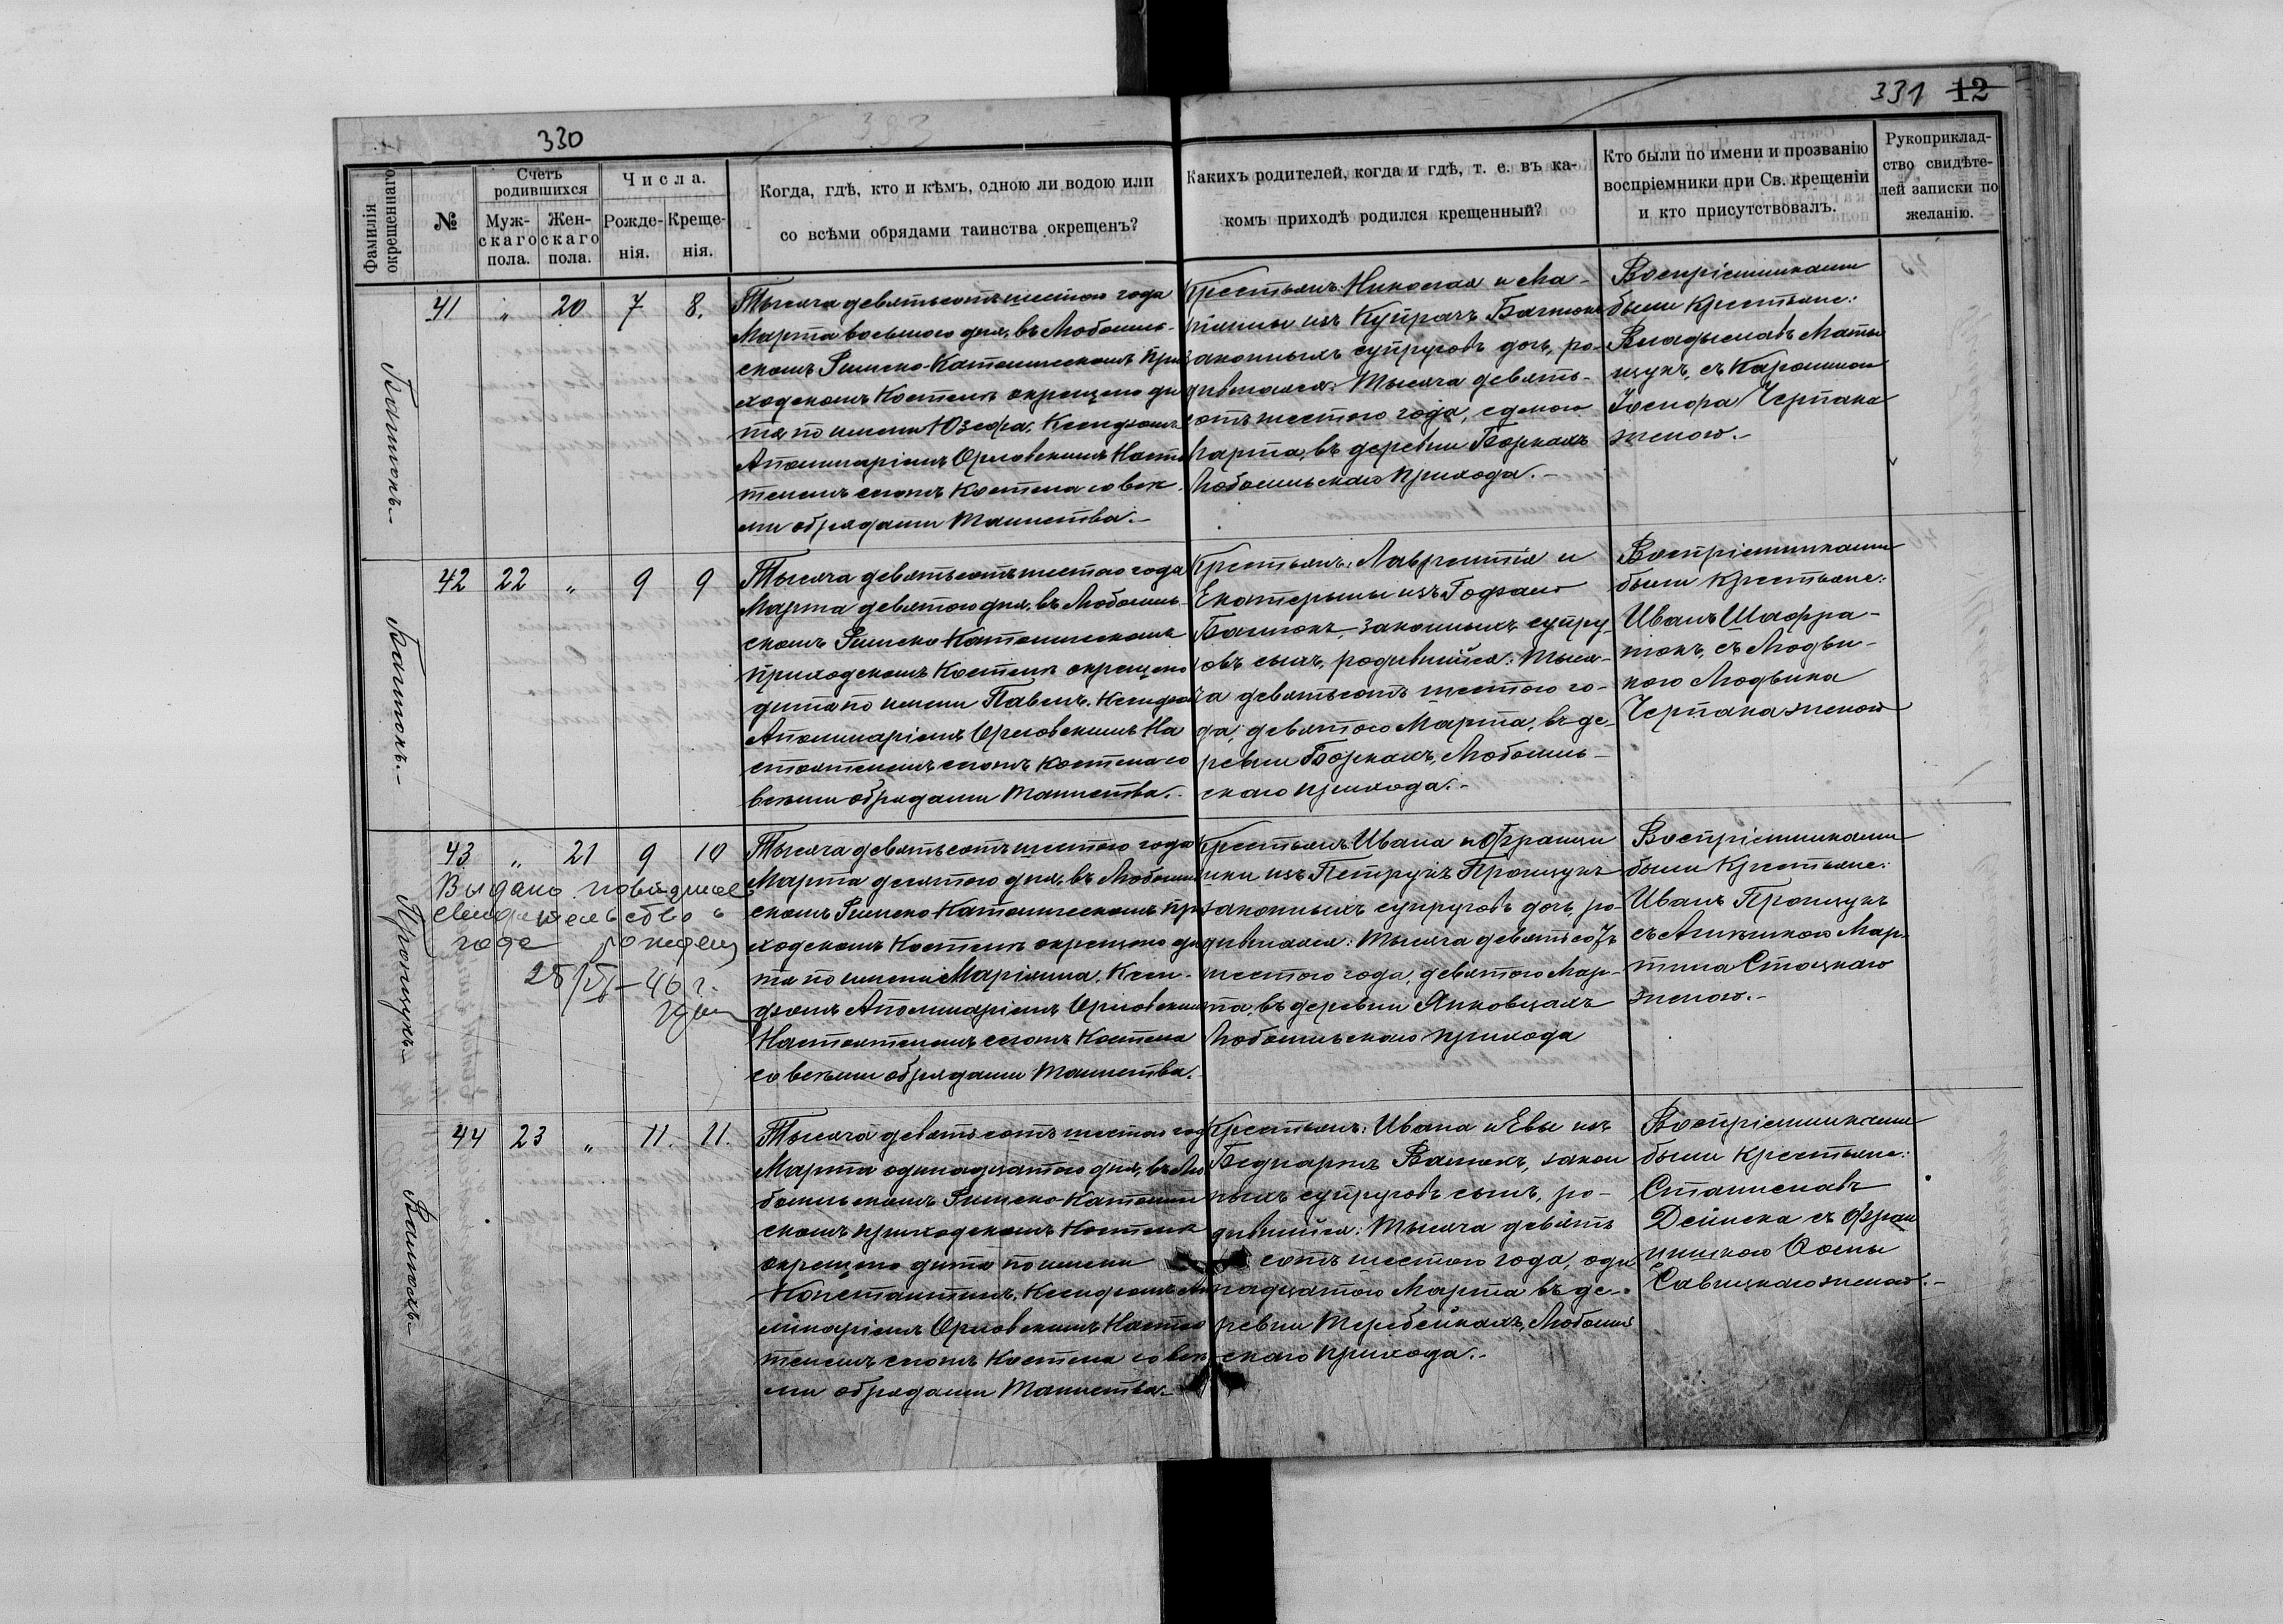 330
331 12
Фамилія
окрещеннаго
№
Счетъ
родившихся
Муж-
скаго
пола.
Жен-
скаго
пола.
Числа.
Рожде-
нія.
Креще-
нія.
Когда, гдѣ, кто и кѣмъ, одною ли водою или
со всѣми обрядами таинства окрещенъ?
Какихъ родителей, когда и гдѣ, т. е. въ ка-
комъ приходѣ родился крещенный?
Кто были по имени и прозванію
воспріемники при Св. крещеніи
и кто присутствовалъ.
Рукоприклад-
ство свидѣте-
лей записки по
желанію.
41 " 20 7 8.
Тысяча девятьсотъ шестого года
Марта восьмого дня, въ Любомль-
скомъ Римско-Католическомъ при
ходскомъ Костелѣ окрещено ди
тя по имени Юзефа, Ксендзомъ
Аполинаріемъ Орловскимъ Насто
телемъ сего Костела со всѣ
ми обрядами Таинства.-
Крестьянъ: Николая и Ма-
ріанны изъ
законныхъ супруговъ дочь, ро-
дившаяся: Тысяча девять-
сотъ шестого года, седмого
Марта, въ деревни Боркахъ
Любомльскаго прихода.-
Воспріемниками
были крестьяне:
Владыславъ
съ Каролиною
Іосифа Черпака
женою.-
42 22 " 9 9
Тысяча девятьсотъ шестаго года
Марта девятого дня, въ Любомль-
скомъ Римско Католическомъ
приходскомъ Костелѣ окрещено
дитя по имени Павелъ. Ксендзомъ
Аполинаріемъ Орловскимъ На
стоятелемъ сего Костела со
всѣми обрядами Таинства.-
Крестьянъ: Лаврентія и
Екатерины изъ
законныхъ супру-
говъ сынъ, родившійся: Тыся-
ча девятьсотъ шестого го-
да, девятого Марта, въ де-
ревни Боркахъ, Любомль-
скаго прихода.-
Воспріемниками
были крестьяне:
Иванъ Шафра-
нюкъ, съ Людви-
кою Людвика
Черпака женою
43 " 21 9 10
Выдано
свидетельство о
годе рожден
1946 г.
Процукъ.-
Тысяча девятьсотъ шестого года
Марта десятого дня, въ Любомль
скомъ Римско Католическомъ при
ходскомъ Костелѣ окрещено ди
тя по имени Маріанна. Ксен-
дзомъ Аполинаріемъ Орловскимъ
Настоятелемъ сего Костела
со всѣми обрядами Таинства.
Крестьянъ: Ивана и Францы
шки изъ Петрукъ Процукъ
законныхъ супруговъ дочь, ро-
дившаяся: Тысяча девятьсотъ
шестого года, девятого Мар-
та, въ деревни Янковцахъ
Любомльскаго прихода
Воспріемниками
были Крестьяне:
Иванъ Процукъ
съ Мар-
тина Стоцкаго
женою.-
44 23 " 11. 11.
Тысяча девятьсотъ шестого год
Марта одинадцатого дня, въ Лю
бомльскомъ Римско-Католич
скомъ приходскомъ Костелѣ
окрещено дитя по имени
Константинъ. Ксендзомъ Апо
линаріемъ Орловскимъ Насто
телемъ сего Костела со всѣ
ми обрядами Таинства.-
Крестьянъ: Ивана и Евы изъ
Беднаржъ закон
ныхъ супруговъ сынъ, ро-
дившійся: Тысяча девять
сотъ шестого года, оди
надцатого Марта въ де-
ревни Теребейкахъ, Любомль
скаго прихода.-
Воспріемниками
были Крестьяне:
Станиславъ
Дейнека съ Фран
цишкою
Савицкаго женою.-